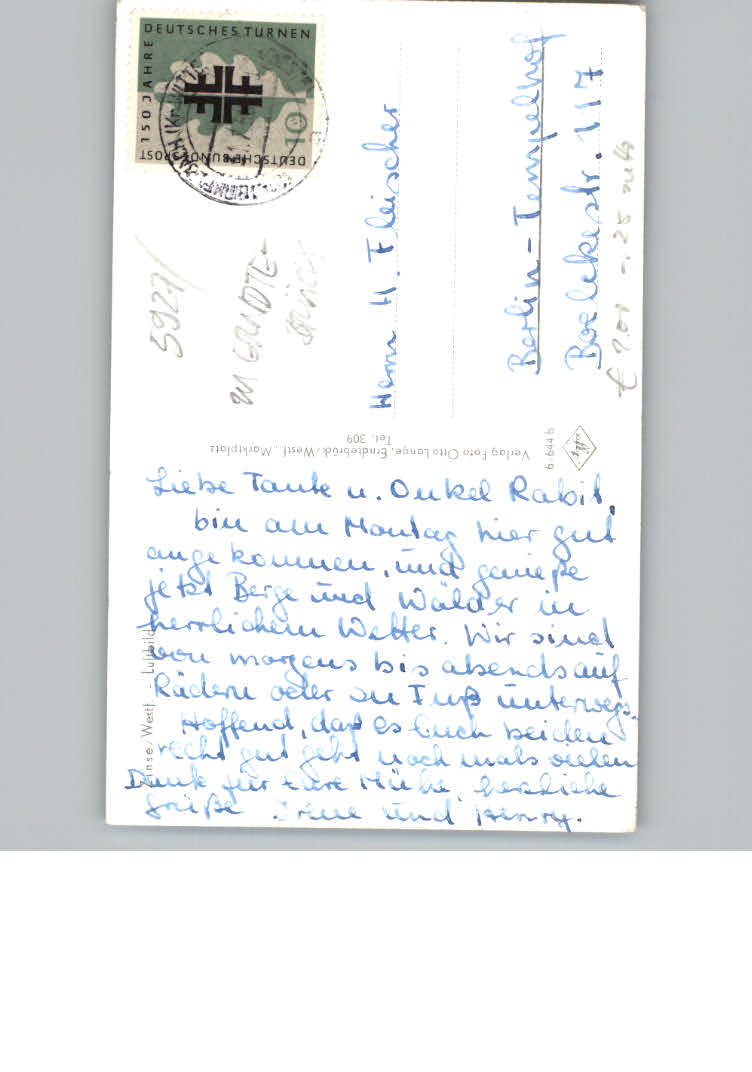 DEUTSCHES TURNEN
150 JAHRE
DEUTSCHE BUNDESPOST
10
5927/
Herrn H. Fleischer
Berlin-Tempelhof
Boelckestr. 117
Verlag Foto Otto Lange, Erndtebrück/Westf., Marktplatz
Tel. 309
Westf. - Luftbild
Liebe Tante u. Onkel Rabit,
bin am Montag hier gut
angekommen, und genieße
jetzt Berge und Wälder in
herrlichem Wetter. Wir sind
von morgens bis abends auf
Rädern oder zu Fuß unterwegs.
Hoffend, daß es Euch beiden
recht gut geht nochmals vielen
Dank für Eure Mühe, herzliche
Grüße Irene und Henry.